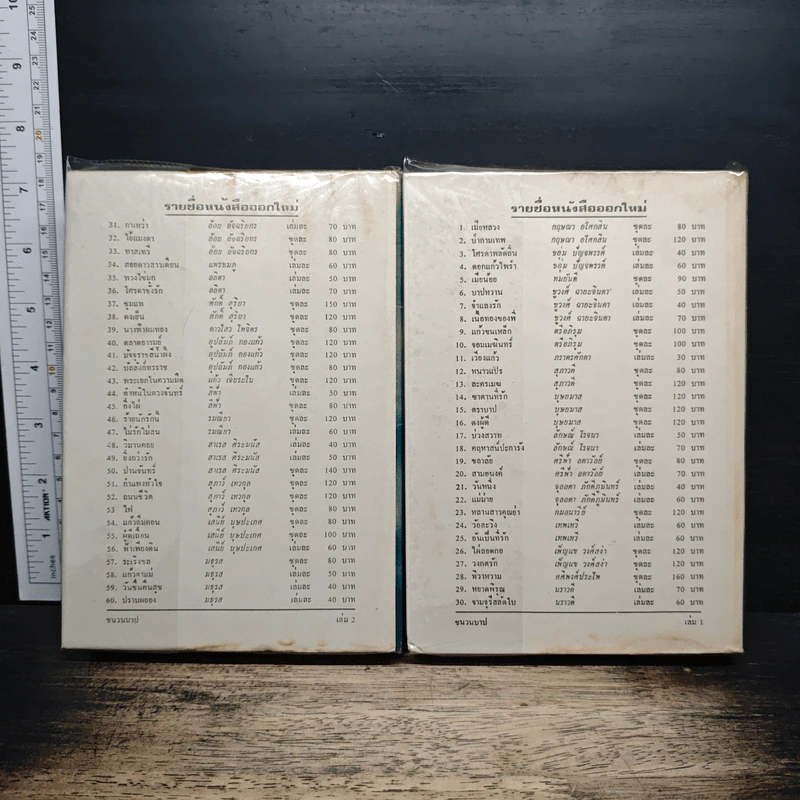 รายชื่อหนังสือออกใหม่
31. กาเหว่า อ้อย อัจฉริยกร เล่มละ 70 บาท
32. ไอ้แมงดา อ้อย อัจฉริยกร ชุดละ 80 บาท
33. ทาสเทวี อ้อย อัจฉริยกร ชุดละ 80 บาท
34. สอยดาวสาวเดือน แพรชมภู เล่มละ 60 บาท
35. พวงไข่มุก ลลิตา เล่มละ 50 บาท
36. โศรดาขี้รัก ลลิตา เล่มละ 70 บาท
37. ชุมแพ ศักดิ์ สุริยา ชุดละ 150 บาท
38. ดงเย็น ศักดิ์ สุริยา ชุดละ 120 บาท
39. นางฟ้าผมทอง ดาวไสว ไพจิตร ชุดละ 80 บาท
40. ตลาดอารมย์ อุปถัมภ์ กองแก้ว ชุดละ 120 บาท
41. มัจจุราชสีน้ำผึ้ง อุปถัมภ์ กองแก้ว ชุดละ 120 บาท
42. บัลลังก์ทรราช อุปถัมภ์ กองแก้ว ชุดละ 80 บาท
43. พระเอกในความมืด แก้ว เจียระไน ชุดละ 120 บาท
44. ตำหนิในดวงจันทร์ สีฟ้า เล่มละ 50 บาท
45. กิ่งไผ่ สีฟ้า ชุดละ 80 บาท
46. ร้ายนักรักนี้ รมณียา ชุดละ 120 บาท
47. ไม่รักไม่สน รมณียา เล่มละ 60 บาท
48. วิมานคอย สาเรส ศิระมนัส เล่มละ 40 บาท
49. ยิ่งกว่ารัก สาเรส ศิระมนัส เล่มละ 50 บาท
50. ปานจันทร์ สาเรส ศิระมนัส ชุดละ 140 บาท
51. กำแพงหัวใจ สุภาว์ เทวกุล ชุดละ 120 บาท
52. ถนนชีวิต สุภาว์ เทวกุล ชุดละ 120 บาท
53 ไฟ สุภาว์ เทวกุล ชุดละ 80 บาท
54. แก้วลืมคอน เสนีย์ บุษปะเกศ ชุดละ 80 บาท
55. ผู้ดีเถื่อน เสนีย์ บุษปะเกศ ชุดละ 100 บาท
56. ฟ้าเพียงดิน เสนีย์ บุษปะเกศ เล่มละ 60 บาท
57. ระเริงชล มธุรส ชุดละ 80 บาท
58. แก้วตาแม่ มธุรส เล่มละ 50 บาท
59. วันชื่นคืนสุข มธุรส เล่มละ 40 บาท
60. ปราบพยอง มธุรส เล่มละ 40 บาท
ชนวนบาป เล่ม 2
รายชื่อหนังสือออกใหม่
1. เมียหลวง กฤษณา อโศกสิน ชุดละ 80 บาท
2. บ้ากามเทพ กฤษณา อโศกสิน ชุดละ 120 บาท
3. โศรดาพลัดถิ่น ชอุ่ม ปัญจพรรค์ เล่มละ 40 บาท
4. ดอกแก้วไหวร่ำ ชอุ่ม ปัญจพรรค์ เล่มละ 60 บาท
5. เมียน้อย ทมยันตี ชุดละ 90 บาท
6. บาปหวาน ชูวงศ์ ฉายะจินดา เล่มละ 50 บาท
7. จำเลยรัก ชูวงศ์ ฉายะจินดา เล่มละ 40 บาท
8. เนื้อทองของพี่ ชูวงศ์ ฉายะจินดา เล่มละ 70 บาท
9. แก้วขนเหล็ก ตรีอภิรุม ชุดละ 100 บาท
10. จอมเมฆินทร์ ตรีอภิรุม ชุดละ 100 บาท
11. เวียงแก้ว ภราดรศักดา เล่มละ 30 บาท
12. หนาวแปร สุภาวดี ชุดละ 80 บาท
13. ละครเมฆ สุภาวดี ชุดละ 120 บาท
14. ซาตานที่รัก บุษยมาส ชุดละ 120 บาท
15. ตราบาป บุษยมาส ชุดละ 120 บาท
16. ดงผู้ดี บุษยมาส ชุดละ 120 บาท
17. บ่วงสวาท ลักษณ์ โรจนา เล่มละ 50 บาท
18. คฤหาสน์ปะการัง ลักษณ์ โรจนา เล่มละ 70 บาท
19. ชลาลัย ศรีฟ้า ลดาวัลย์ ชุดละ 80 บาท
20. สามอนงค์ ศรีฟ้า ลดาวัลย์ เล่มละ 70 บาท
21. วันหนึ่ง จุลลดา ภักดีภูมินทร์ เล่มละ 40 บาท
22. แม่ม่าย จุลลดา ภักดีภูมินทร์ เล่มละ 60 บาท
23. หลานสาวคุณย่า กมลนารีย์ ชุดละ 120 บาท
24. วัยละเริง เทพเทวี เล่มละ 60 บาท
25. อันเป็นที่รัก เทพเทวี เล่มละ 60 บาท
26. ไผ่ลอดกอ เพ็ญแข วงศ์สง่า ชุดละ 120 บาท
27. วงกตรัก เพ็ญแข วงศ์สง่า ชุดละ 120 บาท
28. ทิวาหวาม ศศิพงศ์ประไพ ชุดละ 160 บาท
29. หยาดพิรุณ นราวดี เล่มละ 70 บาท
30. จามจุรีสลัดใบ นราวดี เล่มละ 60 บาท
ชนวนบาป เล่ม 1